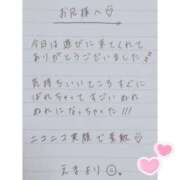 お兄様へ♡
今日は遊びに来てくれて
ありがとうございました
気持ちいいところすぐに
ばれちゃってすごいぬれ
ぬれになっちゃった!!!
ニコニコ笑顔で素敵♡